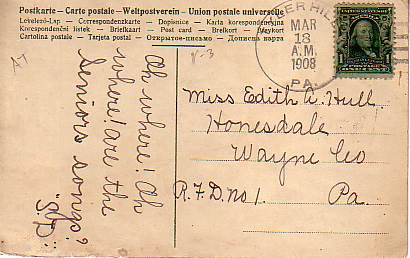 Postkarte — Carte postale — Weltpostverein — Union postale universelle
Levelező-Lap — Correspondenzkarte — Dopisnice — Karta korespondencyjna
Korespondenční listek — Briefkaart — Post card — Brefkort — Brevkort
Cartolina postale — Tarjeta postal — Открытое-письмо — Дописна карта
MAR
13
A.M.
1908
PA.
Miss Edith A. Hull
Honesdale
Wayne Co
R.F.D. No 1. Pa.
Ah where! Ah
where! are the
Seniors songs?